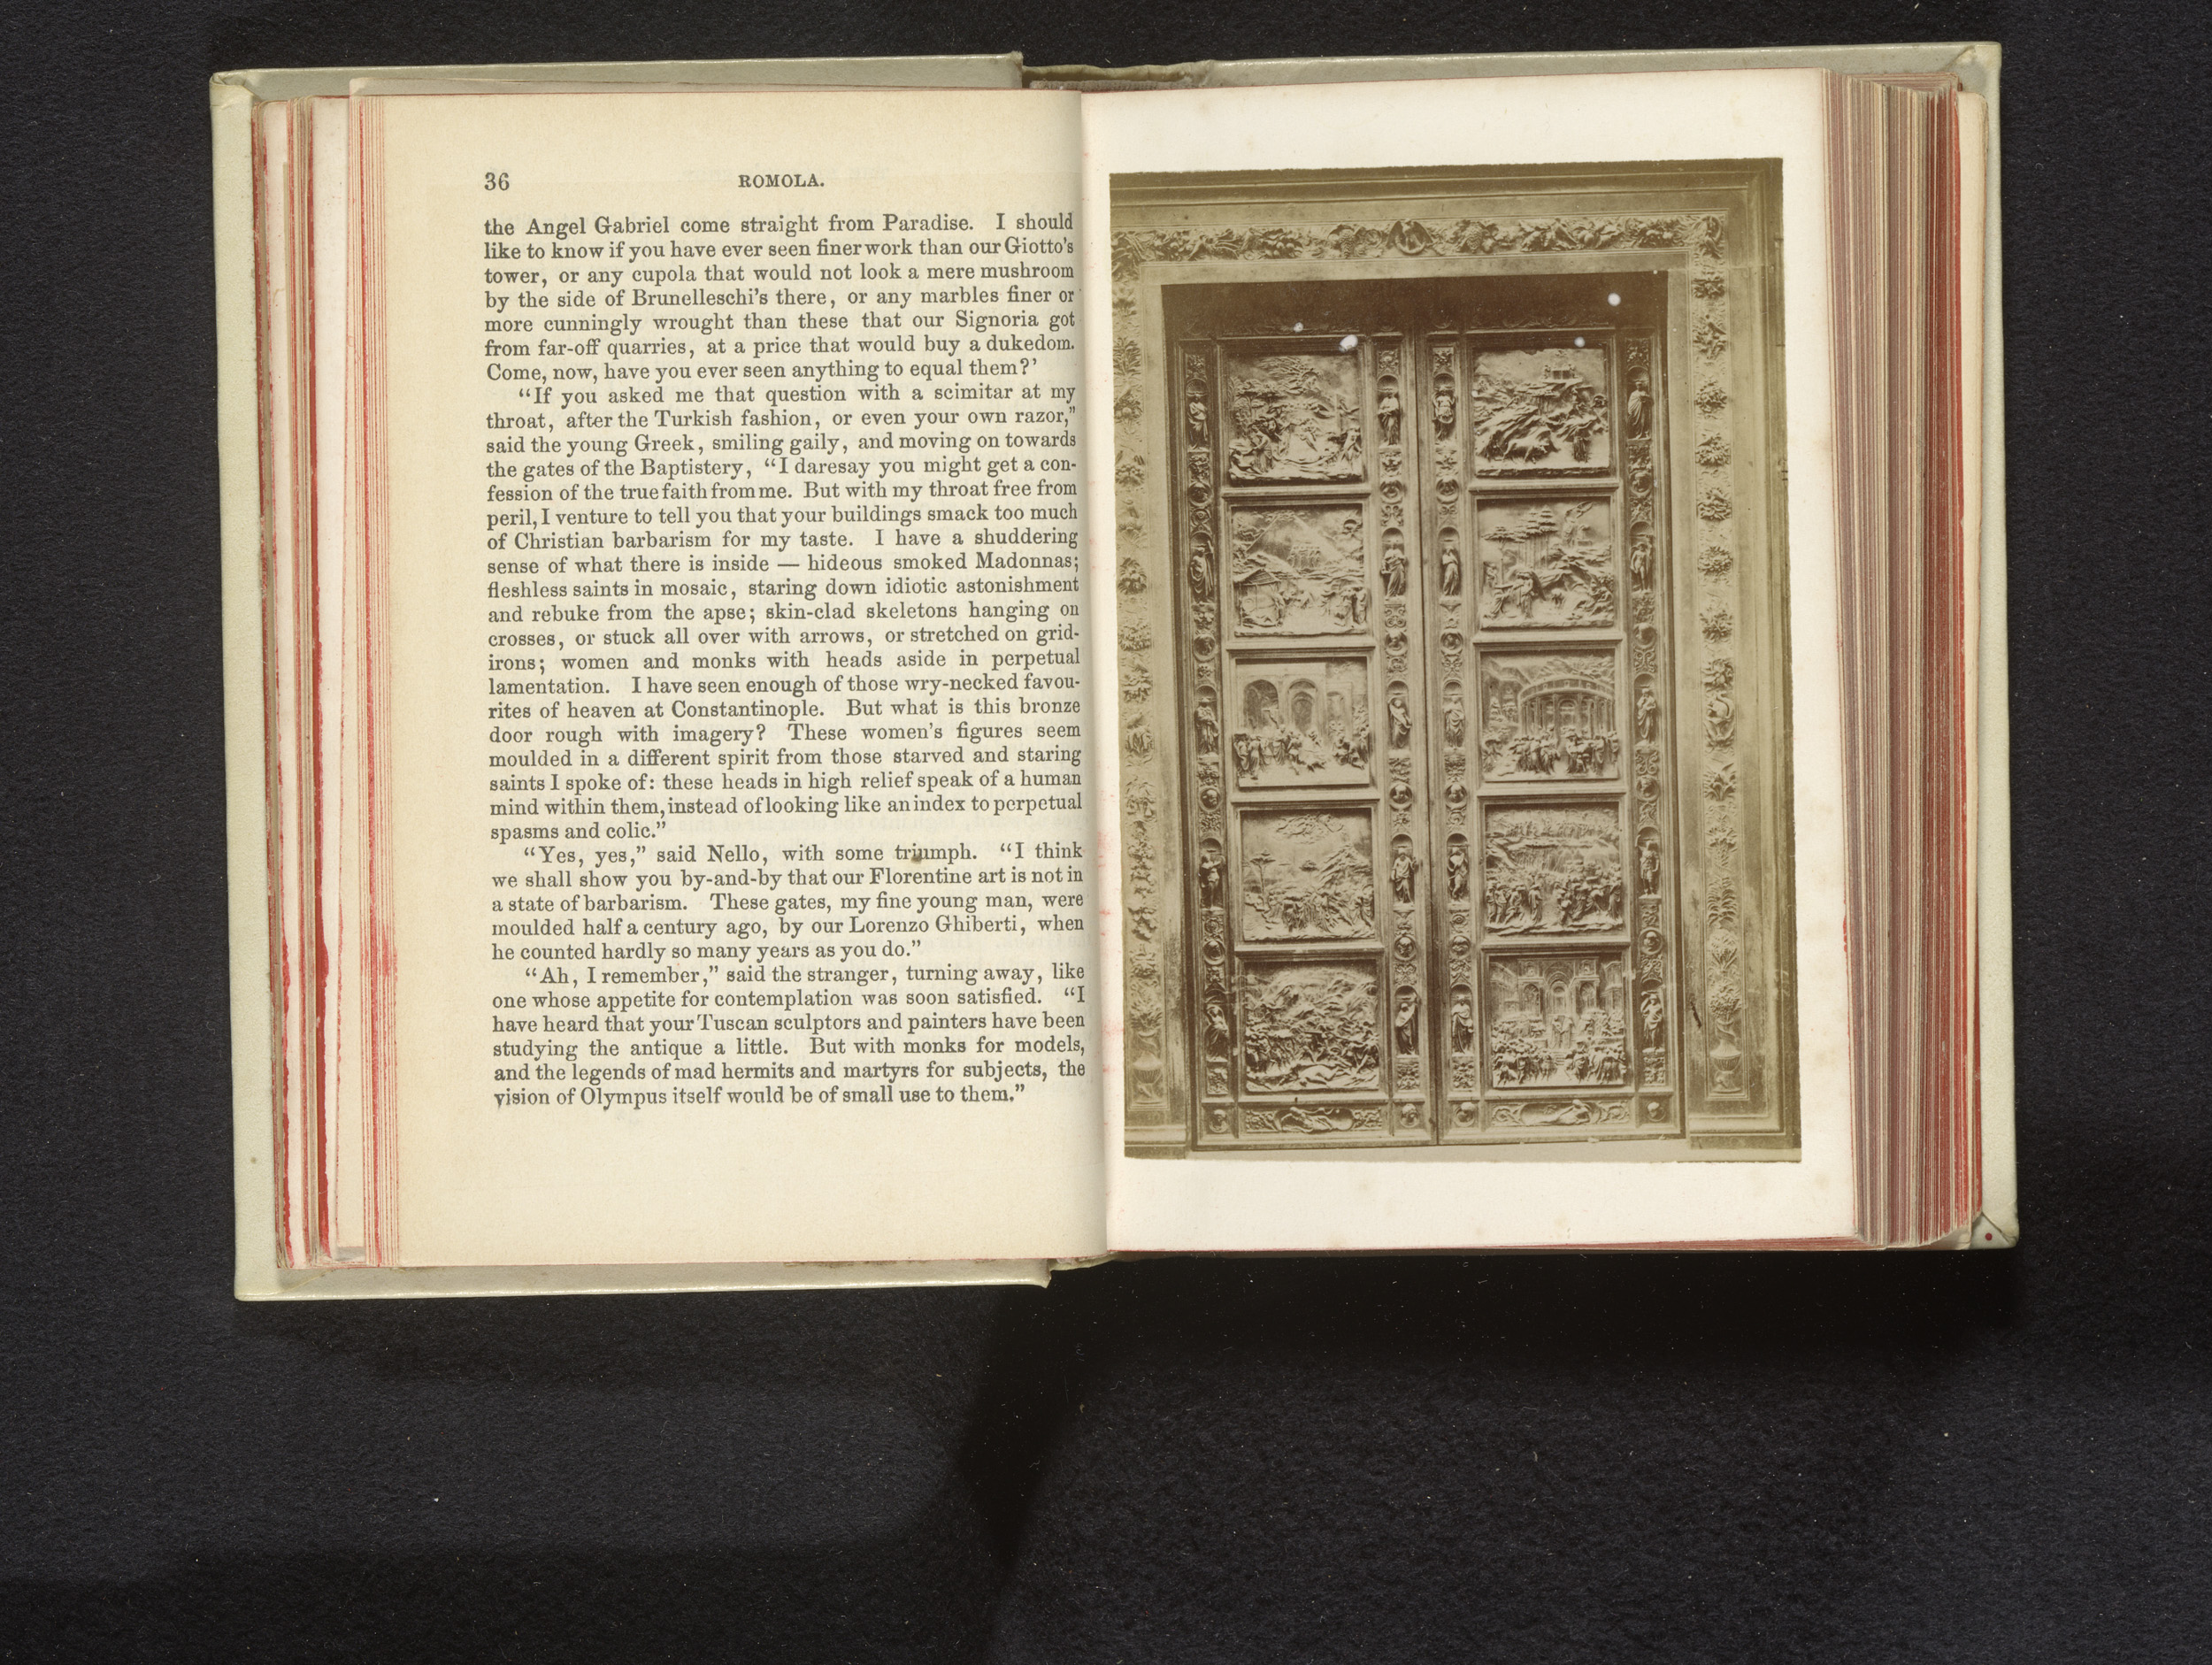 36
ROMOLA.
the Angel Gabriel come straight from Paradise. I should
like to know if you have ever seen finer work than our Giotto's
tower, or any cupola that would not look a mere mushroom
by the side of Brunelleschi's there, or any marbles finer or
more cunningly wrought than these that our Signoria got
from far-off quarries, at a price that would buy a dukedom.
Come, now, have you ever seen anything to equal them?'
“If you asked me that question with a scimitar at my
throat, after the Turkish fashion, or even your own razor,”
said the young Greek, smiling gaily, and moving on towards
the gates of the Baptistery, “I daresay you might get a con-
fession of the true faith from me. But with my throat free from
peril, I venture to tell you that your buildings smack too much
of Christian barbarism for my taste. I have a shuddering
sense of what there is inside — hideous smoked Madonnas;
fleshless saints in mosaic, staring down idiotic astonishment
and rebuke from the apse; skin-clad skeletons hanging on
crosses, or stuck all over with arrows, or stretched on grid-
irons; women and monks with heads aside in perpetual
lamentation. I have seen enough of those wry-necked favou-
rites of heaven at Constantinople. But what is this bronze
door rough with imagery? These women's figures seem
moulded in a different spirit from those starved and staring
saints I spoke of: these heads in high relief speak of a human
mind within them, instead of looking like an index to perpetual
spasms and colic.”
“Yes, yes,” said Nello, with some triumph. “I think
we shall show you by-and-by that our Florentine art is not in
a state of barbarism. These gates, my fine young man, were
moulded half a century ago, by our Lorenzo Ghiberti, when
he counted hardly so many years as you do.”
“Ah, I remember,” said the stranger, turning away, like
one whose appetite for contemplation was soon satisfied. “I
have heard that your Tuscan sculptors and painters have been
studying the antique a little. But with monks for models,
and the legends of mad hermits and martyrs for subjects, the
vision of Olympus itself would be of small use to them.”